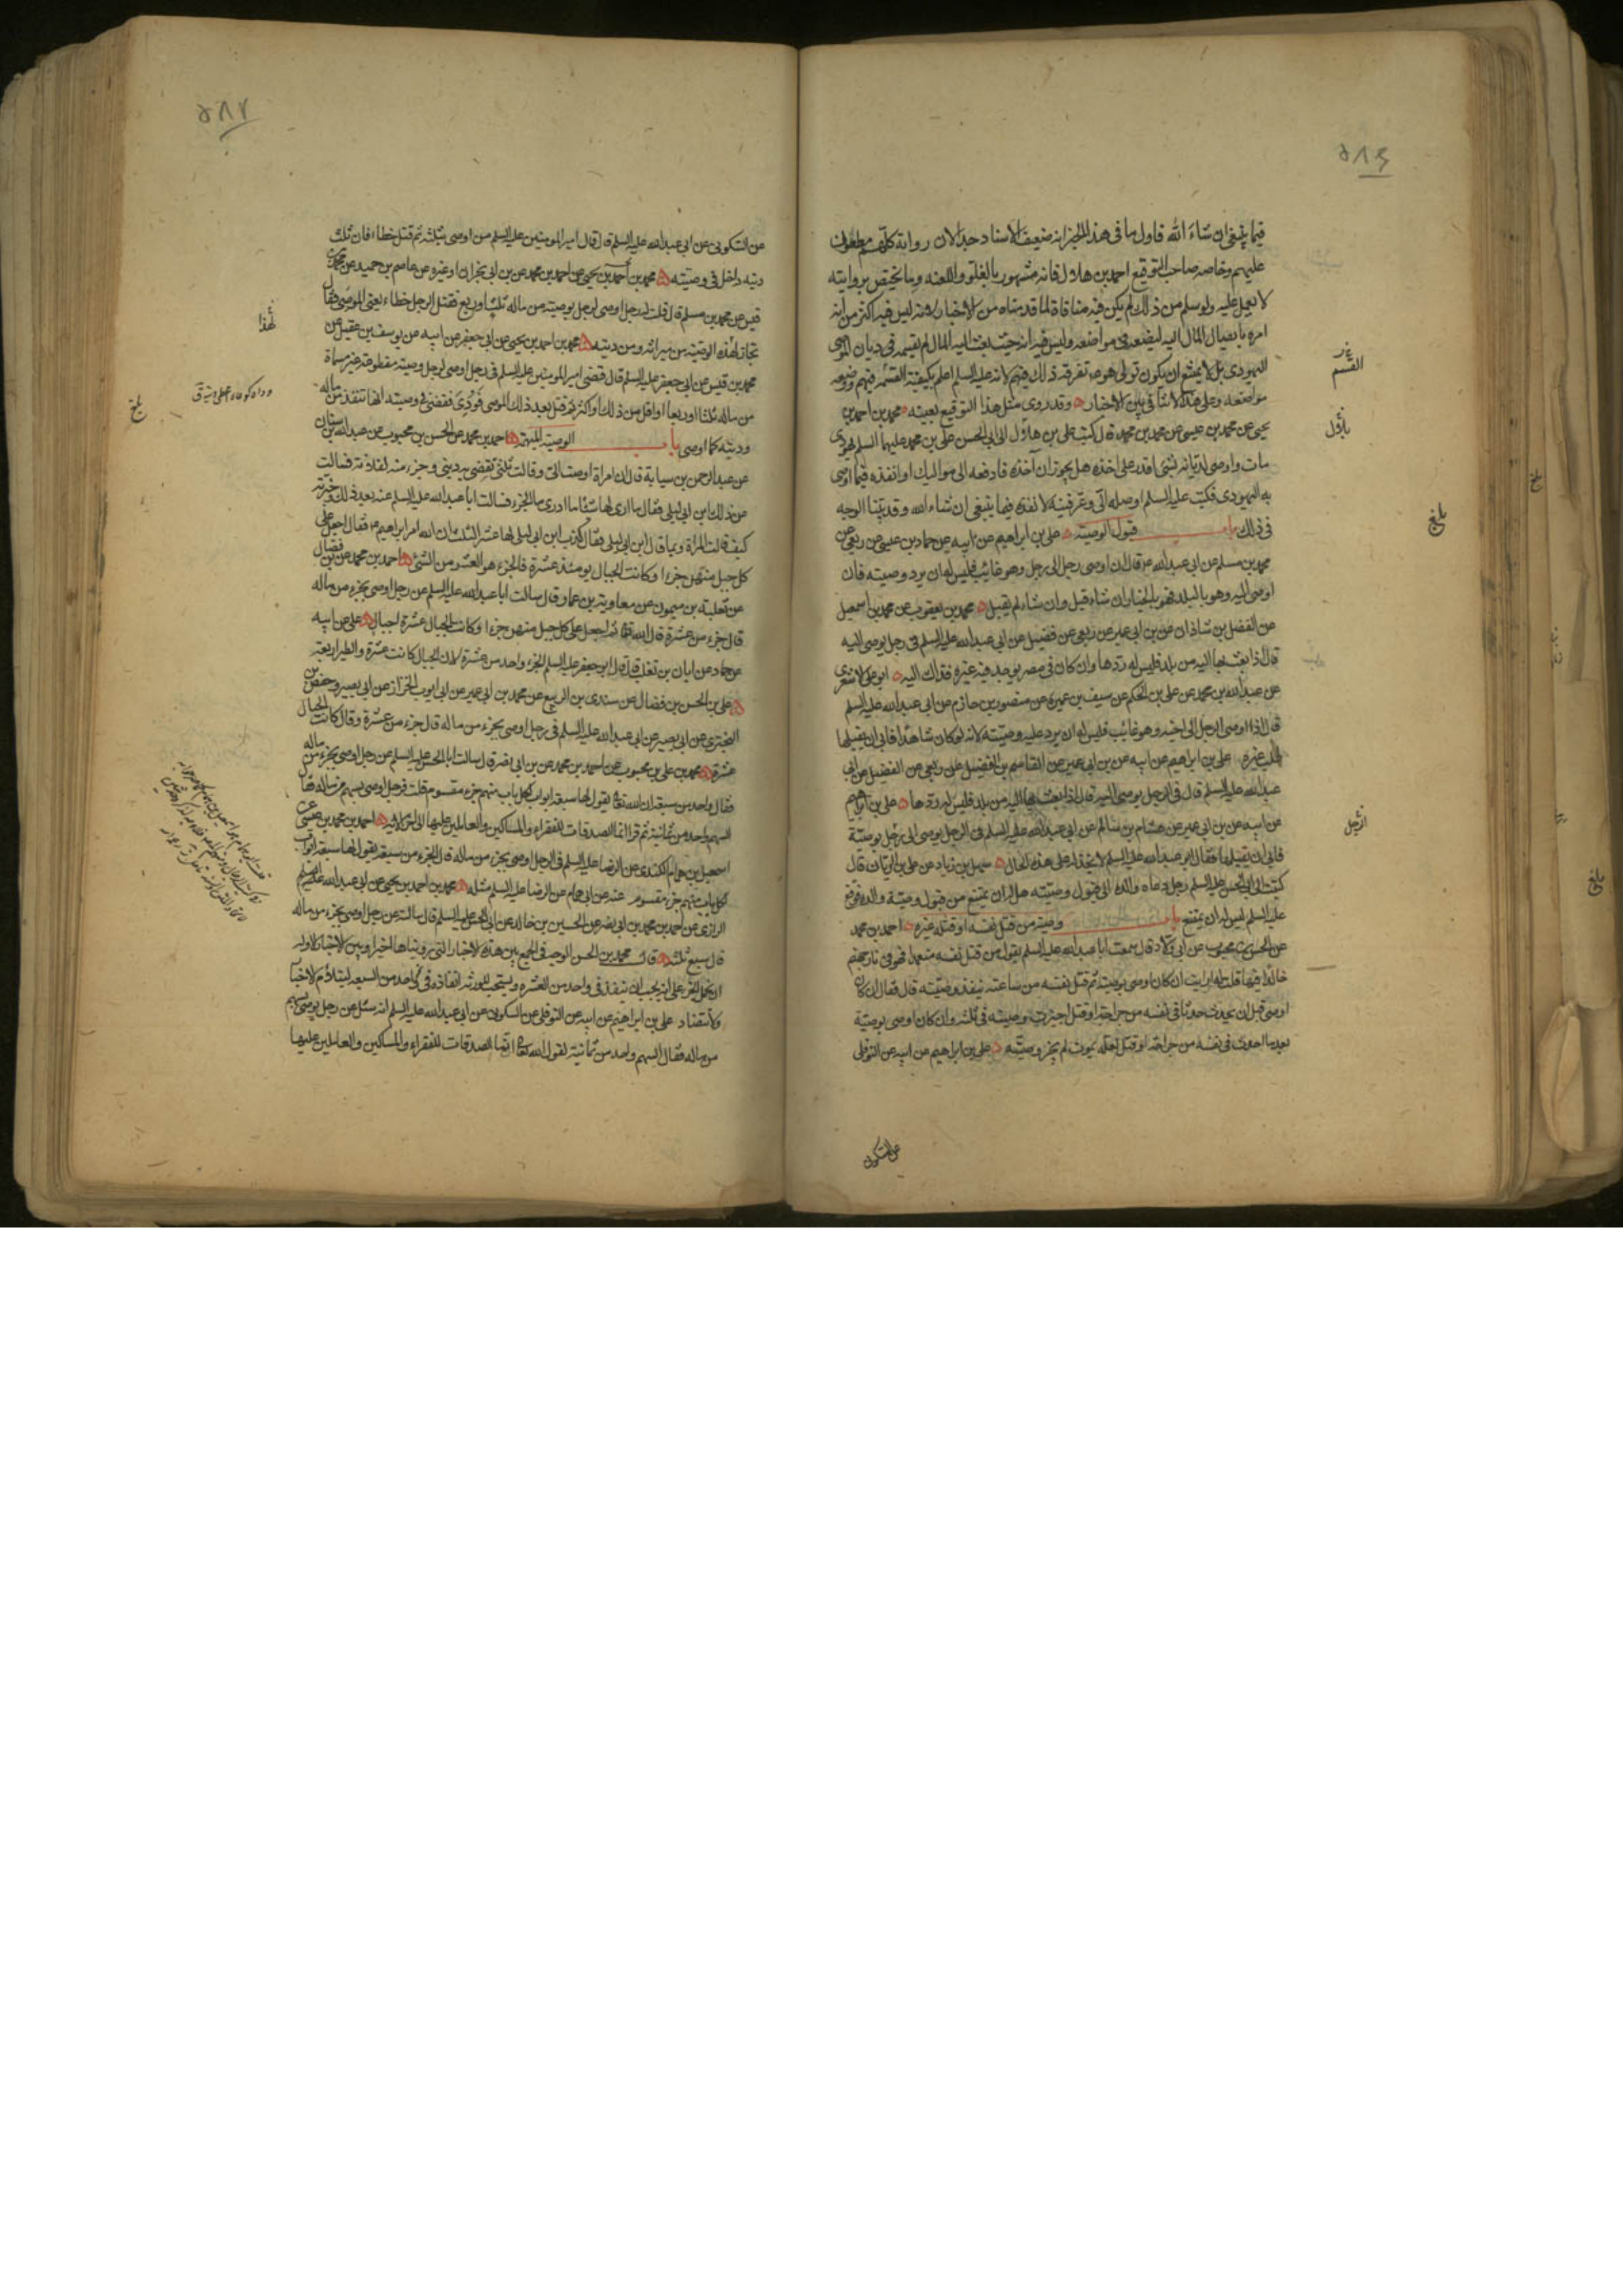 فيما ينبغي ان شاء الله فاول ما في هذا الخبر انه ضعيف الاسناد جدا لان رواته كلهم مطعون
عليهم وخاصه صاحب التوقيع احمد بن هلال فانه مشهور بالغلو واللعنه وما يختص بروايته
لا يعمل عليه ولو سلم من ذلك لم يكن فيه منافاة لما قدمناه من الاخبار لانه ليس فيه اكثر من انه
امره بايصال المال اليه ليضعه في مواضعه وليس فيه انه حيث بعث اليه المال لم يقسمه في ديان الموصى
اليهودى بل لا يمتنع ان يكون تولى هو ع تفرقه ذلك فيهم لانه عليه السلم اعلم بكيفية القسم فيهم ووضعه
مواضعه وعلى هذا لا تنافي بين الاخبار وقد روى مثل هذا التوقيع بعينه محمد بن احمد بن
يحيى عن محمد بن عيسى عن محمد بن محمد قال كتب على بن هلال الى ابى الحسن على بن محمد عليهما السلم يهودى
مات واوصى لديانه بشئ اقدر على اخذه هل يجوز ان آخذه فادفعه الى مواليك او انفذه فيما اوصى
به اليهودى فكتب عليه السلم اوصله الى وعرفنيه لانفذه فيما ينبغى ان شاء الله وقد بينا الوجه
فى ذلك باب قبول الوصية على بن ابراهيم عن ابيه عن حماد بن عيسى عن ربعى عن
محمد بن مسلم عن ابى عبد الله ع قال ان اوصى رجل الى رجل وهو غايب فليس له ان يرد وصيته فان
اوصى اليه وهو بالبلد فهو بالخيار ان شاء قبل وان شاء لم يقبل محمد بن يعقوب عن محمد بن اسمعيل
عن الفضل بن شاذان عن بن ابى عمير عن ربعى عن فضيل عن ابى عبد الله عليه السلم فى رجل يوصى اليه
قال اذا بعث بها اليه من بلد فليس له ردها وان كان فى مصر يوجد فيه غيره فذاك اليه ابو على الاشعرى
عن عبد الله بن محمد عن على بن الحكم عن سيف بن عميرة عن منصور بن حازم عن ابى عبد الله عليه السلم
قال اذا اوصى الرجل الى اخيه وهو غائب فليس له ان يرد عليه وصيته لانه لو كان شاهدا فابى ان يقبلها
طلب غيره على بن ابراهيم عن ابيه عن بن ابى عمير عن القاسم بن الفضيل عن ربعى عن الفضيل عن ابى
عبد الله عليه السلم قال فى الرجل يوصى اليه قال اذا بعث بها اليه من بلد فليس له ردها على بن ابراهيم
عن ابيه عن بن ابى عمير عن هشام بن سالم عن ابى عبد الله عليه السلم فى الرجل يوصى الى رجل بوصية
فابى ان يقبلها فقال ابو عبد الله عليه السلم لا يخذله على هذه الحال سهل بن زياد عن على بن الريان قال
كتبت الى ابى الحسن عليه السلم رجل دعاه والده الى قبول وصيته هل له ان يمتنع من قبول وصية والده فوقع
عليه السلم ليس له ان يمتنع باب وصية من قتل نفسه او قتله غيره احمد بن محمد
عن الحسن بن محبوب عن ابى ولاد قال سمعت ابا عبد الله عليه السلم يقول من قتل نفسه متعمدا فهو فى نار جهنم
خالدا فيها قلت له ارايت ان كان اوصى بوصية ثم قتل نفسه من ساعته تنفذ وصيته قال فقال ان كان
اوصى قبل ان يحدث حدثا فى نفسه من جراحة او قتل اجيزت وصيته فى ثلثه وان كان اوصى بوصية
بعد ما احدث فى نفسه من جراحة او قتل لعله يموت لم يجز وصيته على بن ابراهيم عن ابيه عن النوفلى
عن السكونى
القسم
الرجل
بلغ
بلغ
عن السكونى عن ابى عبد الله عليه السلم قال قال امير المومنين عليه السلم من اوصى بثلثه ثم قتل خطاء فان ثلث
ديته داخل فى وصيته محمد بن احمد بن يحيى عن احمد بن محمد عن بن ابى نجران او غيره عن عاصم بن حميد عن محمد بن
قيس عن محمد بن مسلم قال قلت له رجل اوصى لرجل بوصية من ماله ثلث او ربع فقتل الرجل خطاء يعنى الموصى فقال
تجاز لهذه الوصية من ميراثه ومن ديته محمد بن احمد بن يحيى عن ابى جعفر عن ابيه عن يوسف بن عقيل عن
محمد بن قيس عن ابى جعفر عليه السلم قال قضى امير المومنين عليه السلم فى رجل اوصى لرجل وصية مقطوعة غير مسماة
من ماله ثلثا او ربعا او اقل من ذلك او اكثر ثم قتل بعد ذلك الموصى فودى فقضى فى وصيته انها تنفذ من ماله
وديته كما اوصى باب الوصية المبهمة احمد بن محمد عن الحسن بن محبوب عن عبد الله بن سنان
عن عبد الرحمن بن سيابة قال ان امراة اوصت الى وقالت ثلثى تقضى به دينى وجزء منه لفلانة فسالت
عن ذلك ابن ابى ليلى فقال ما ارى لها شيئا ما ادرى ما الجزء فسالت ابا عبد الله عليه السلم عنه بعد ذلك وخبرته
كيف قالت المراة وبما قال ابن ابى ليلى فقال كذب ابن ابى ليلى لها عشر الثلث ان الله امر ابراهيم ع فقال اجعل على
كل جبل منهن جزءا وكانت الجبال يومئذ عشرة فالجزء هو العشر من الشئ احمد بن محمد عن بن فضال
عن ثعلبة بن ميمون عن معاوية بن عمار قال سالت ابا عبد الله عليه السلم عن رجل اوصى بجزء من ماله
قال جزء من عشرة قال الله تعالى ثم اجعل على كل جبل منهن جزءا وكانت الجبال عشرة اجبال على عن ابيه
عن حماد عن ابان بن تغلب قال قال ابو جعفر عليه السلم الجزء واحد من عشرة لان الجبال كانت عشرة والطير اربعة
على بن الحسن بن فضال عن سندى بن الربيع عن محمد بن ابى عمير عن ابى ايوب الخزاز عن ابى بصير وحفص بن
البخترى عن ابى بصير عن ابى عبد الله عليه السلم فى رجل اوصى بجزء من ماله قال جزء من عشرة وقال كانت الجبال
عشرة محمد بن على بن محبوب عن احمد بن محمد عن بن ابى نصر قال سالت ابا الحسن عليه السلم عن رجل اوصى بجزء من ماله
فقال واحد من سبعة ان الله تعالى يقول لها سبعة ابواب لكل باب منهم جزء مقسوم قلت فرجل اوصى بسهم من ماله فقال
السهم واحد من ثمانية ثم قرا انما الصدقات للفقراء والمساكين والعاملين عليها الى اخر الاية احمد بن محمد بن عيسى عن
اسمعيل بن همام الكندى عن الرضا عليه السلم فى الرجل اوصى بجزء من ماله قال الجزء من سبعة يقول لها سبعة ابواب
لكل باب منهم جزء مقسوم عنه عن ابى همام عن الرضا عليه السلم مثله محمد بن احمد بن يحيى عن ابى عبد الله
الرازى عن احمد بن محمد بن ابى نصر عن الحسين بن خالد عن ابى الحسن عليه السلم قال سالته عن رجل اوصى بجزء من ماله
قال سبع ثلثه قال محمد بن الحسن الوجه فى الجمع بين هذه الاخبار التى رويناها اخيرا وبين الاخبار الاوله
ان نحمل الجزء على انه يجب ان ينفذ فى واحد من العشره ويستحب للورثه انفاذه فى واحد من السبعه لتتلاءم الاخبار
ولا تتضاد على بن ابراهيم عن ابيه عن النوفلى عن السكونى عن ابى عبد الله عليه السلم انه سئل عن رجل يوصى بسهم
من ماله فقال السهم واحد من ثمانية لقول الله تعالى انما الصدقات للفقراء والمساكين والعاملين عليها
لهذا
بلغ